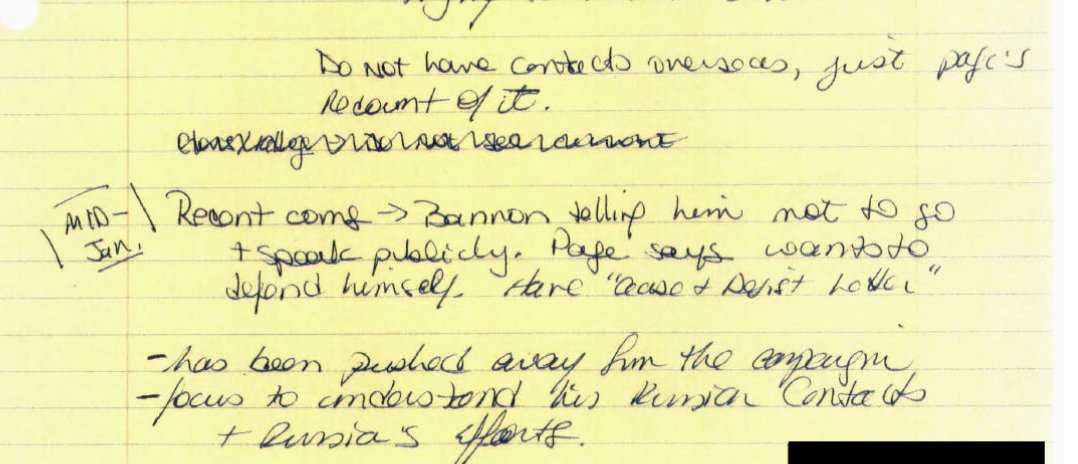 Do not have contacts overseas, just page's
Recount of it.
not
MID-
Jan.
Recent coms → Bannon telling him not to go
+ speak publicly. Page says wants to
defend himself. Have "Cease + Desist Letter"
- has been pushed away from the campaign
- focus to understand his Russian Contacts
+ Russia's efforts.